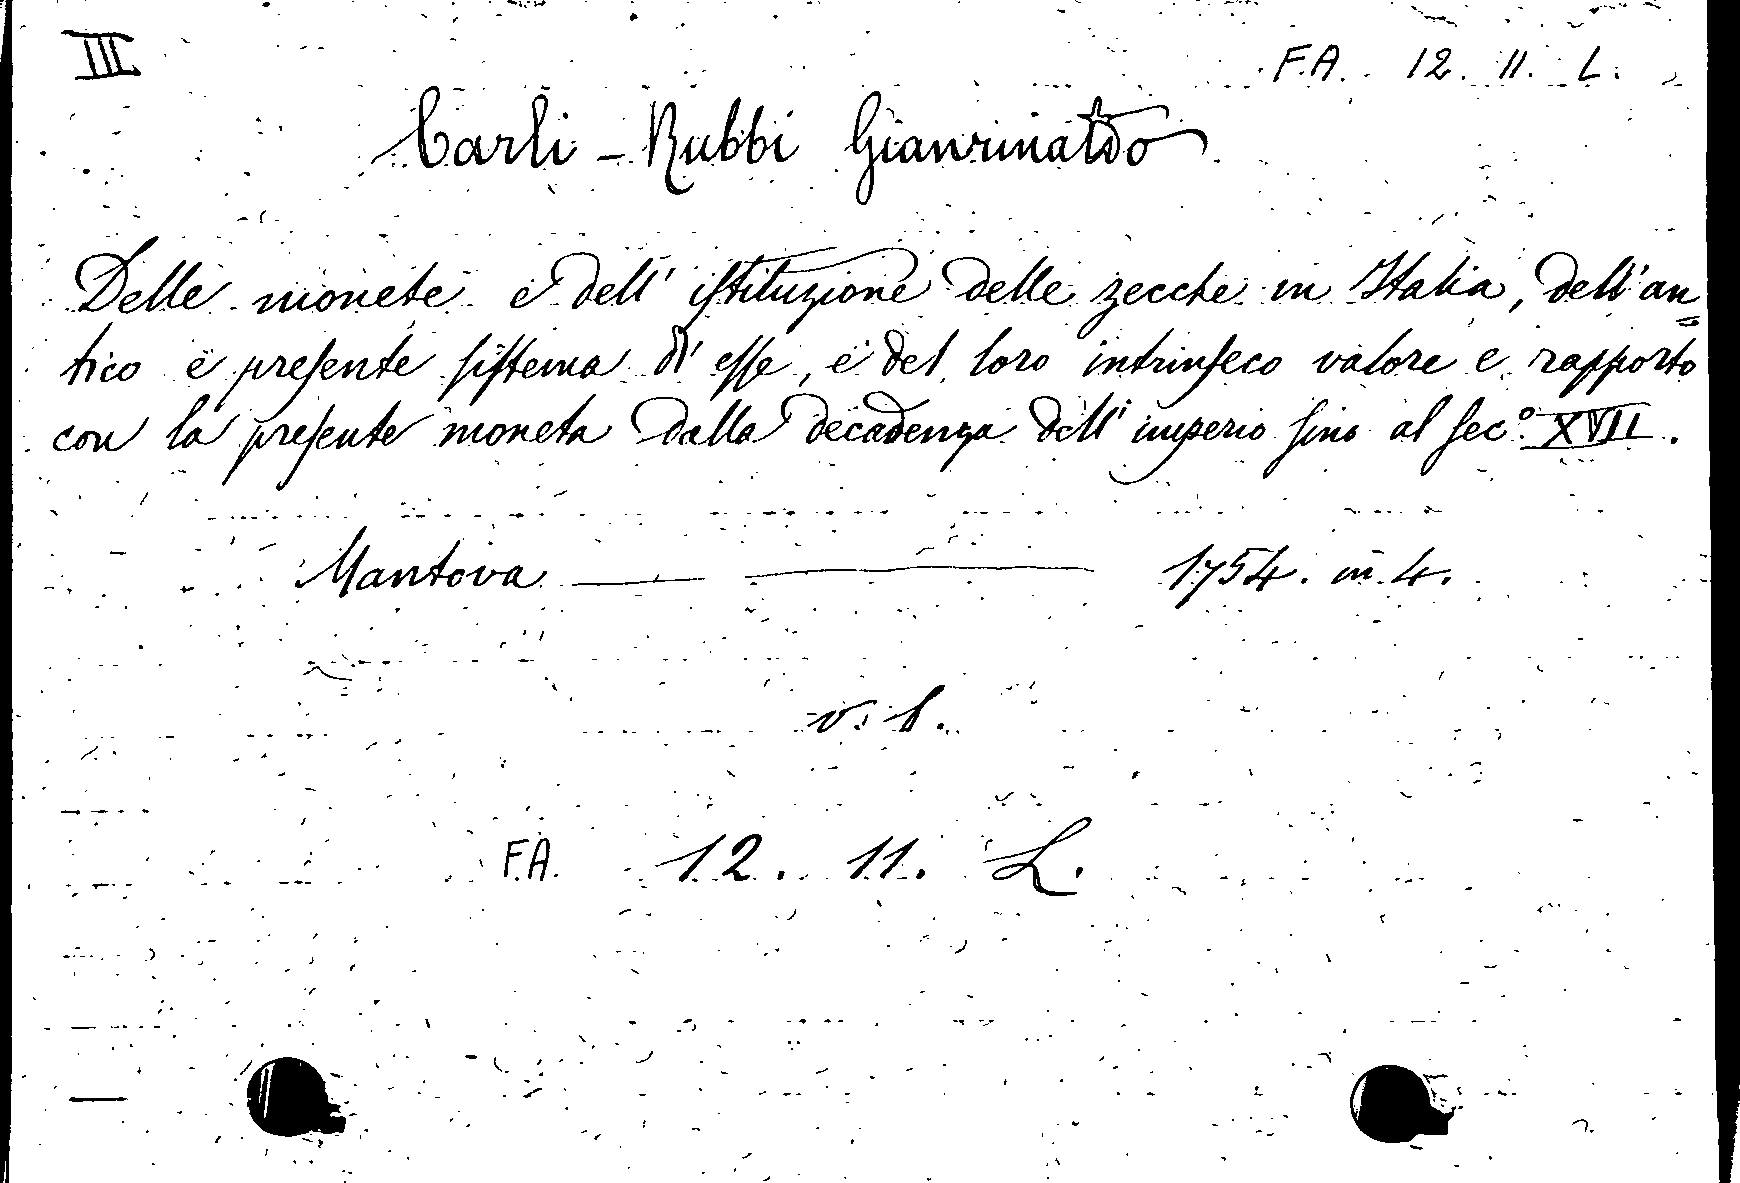 III
F.A. 12. 11. L.
Carli - Rubbi Gianrinaldo
Delle monete e dell' iſtituzione delle zecche in Italia, dell'an=
tico e preſente ſiſtema di eſſe, e del loro intrinſeco valore e rapporto
con la preſente moneta dalla decadenza dell' imperio ſino al ſec.º XVII.
Mantova 1754. in 4.
v. 1.
F.A. 12. 11. L.